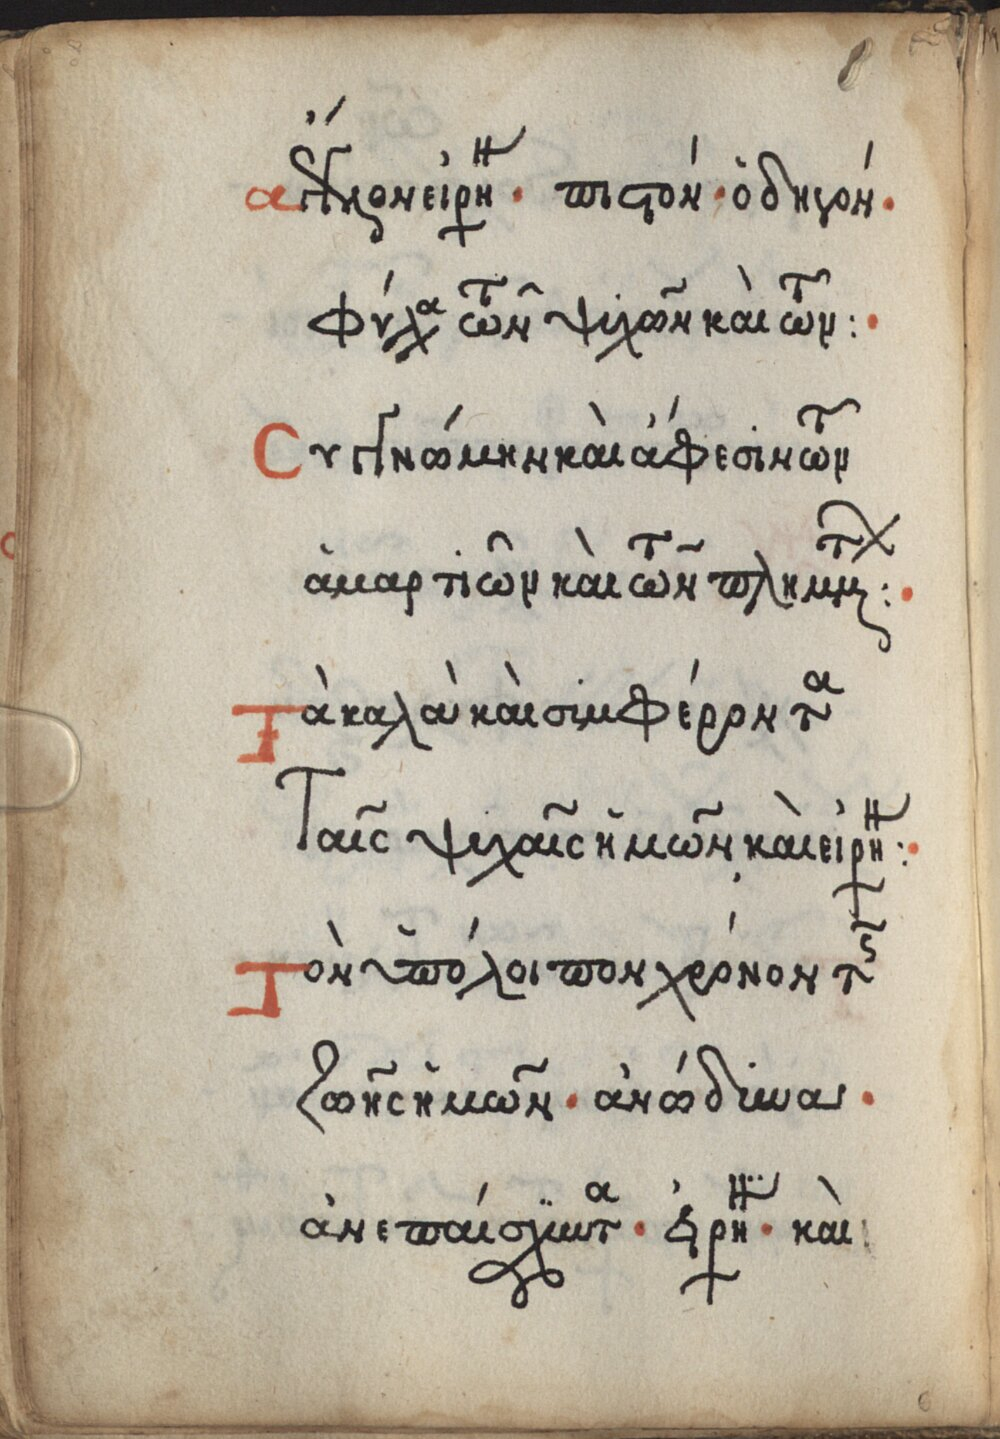 ἄγγελον εἰρή · πιστὸν · ὁδηγόν ·
φύλα τῶν ψιχῶν καὶ τῶν : ·
Συγγνώμην καὶ ἄφεσιν τῶν
ἁμαρτιῶν καὶ τῶν πλημμ : ·
Τὰ καλὰ καὶ σιμφέροντα
Ταῖς ψιχαῖς ἡμῶν, καὶ εἰρή : ·
Τὸν ὑπόλοιπον χρόνον τῆς
ζωῆς ἡμῶν · ἀνώδινα ·
ἀνεπαίσχιντα · εἰρή · καὶ